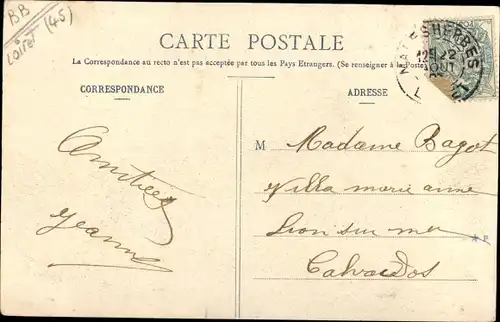 BB
Loiret (45)
CARTE POSTALE
La Correspondance au recto n'est pas acceptée par tous les Pays Etrangers. (Se renseigner à la Poste)
CORRESPONDANCE
ADRESSE
MALESHERBES
Amitiés
Jeanne
M Madame Bagot
Villa marie anne
Lion sur mer
Calvados